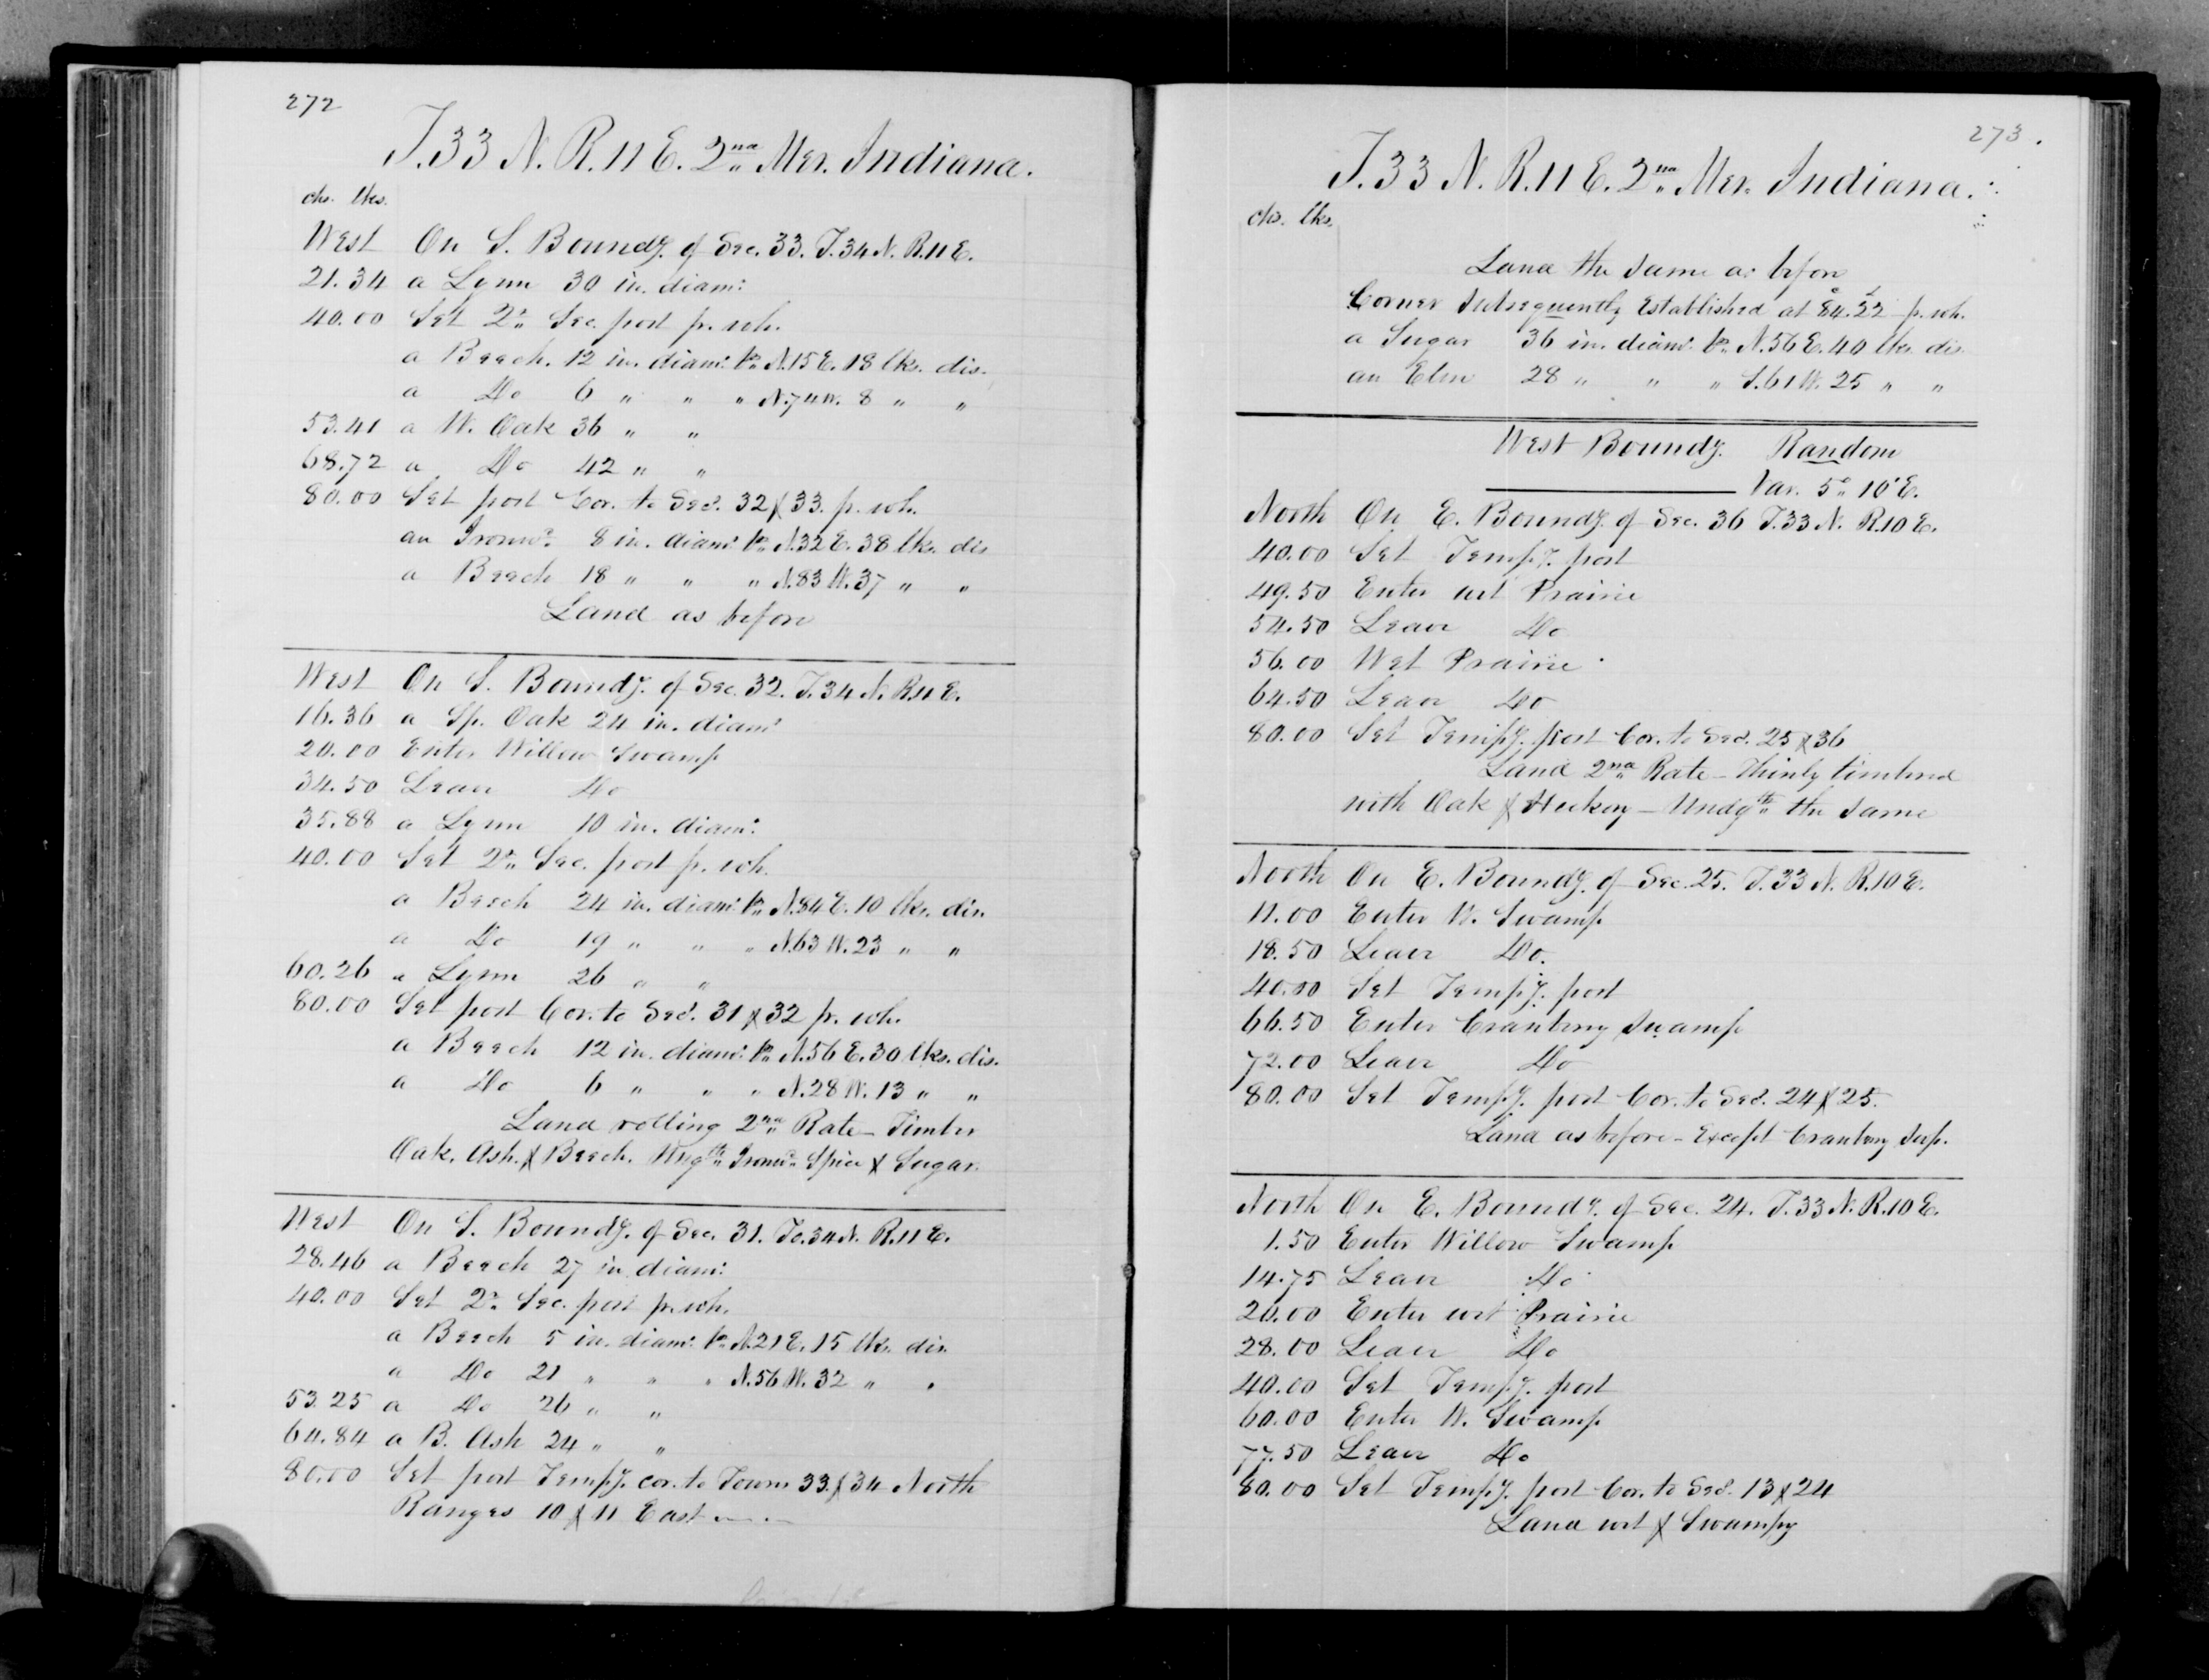 272
T. 33 N. R. 11 E. 2nd Mer. Indiana.
chs. lks.
West On S. Boundy. of Sec. 33. T. 34 N. R. 11 E.
21.34 a Lynn 30 in. diamr.
40.00 Set 2r. Sec. post pr. wh.
a Beech. 12 in. diamr. brs. N. 15 E. 18 lks. dis.
a Do 6 " " " N. 74 W. 8 " "
53.41 a W. Oak 36 " "
68.72 a Do 42 " "
80.00 Set post Cor. to Secs. 32 & 33. pr. wh.
an Ironwd. 8 in. diamr. brs. N. 32 E. 38 lks. dis
a Beech 18 " " " N. 83 W. 37 " "
Land as before
West On S. Boundy. of Sec. 32. T. 34 N. R. 11 E.
16.36 a Sp. Oak 24 in. diamr
20.00 Enter Willow Swamp
34.50 Leave Do
35.88 a Lynn 10 in. diamr.
40.00 Set 2r. Sec. post pr. wh.
a Beech 24 in. diamr. brs. N. 84 E. 10 lks. dis.
a Do 19 " " " N. 63 W. 23 " "
60.26 a Lynn 26 " "
80.00 Set post Cor. to Secs. 31 & 32 pr. wh.
a Beech 12 in. diamr. brs. N. 56 E. 30 lks. dis.
a Do 6 " " " N. 28 W. 13 " "
Land rolling 2nd Rate - Timber
Oak. Ash. & Beech. Ungth. Ironwd. Spice & Sugar.
West On S. Boundy. of Sec. 31. To. 34 N. R. 11 E.
28.46 a Beech 27 in diamr.
40.00 Set 2r. Sec. post pr. wh.
a Beech 5 in. diamr. brs. N. 21 E. 15 lks. dis.
a Do 21 " " " N. 56 W. 32 " "
53.25 a Do 26 " "
64.84 a B. Ash 24 " "
80.00 Set post Tempy. cor. to Towns 33. & 34 North
Ranges 10 & 11 East
273.
T. 33 N. R. 11 E. 2nd Mer. Indiana.
chs. lks.
Land the same as before
Corner Subsequently Established at 84.22 pr. wh.
a Sugar 36 in. diamr. brs. N. 56 E. 40 lks. dis.
an Elm 28 " " " S. 61 W. 25 " "
West Boundy. Random
Var. 5° 10' E.
North On E. Boundy. of Sec. 36 T. 33 N. R. 10 E.
40.00 Set Tempy. post
49.50 Enter wet Prairie
54.50 Leave Do
56.00 Wet Prairie
64.50 Leave Do
80.00 Set Tempy. post Cor. to Secs. 25 & 36
Land 2nd Rate - Thinly timbered
with Oak & Hickory - Undgth. the same
North On E. Boundy. of Sec. 25. T. 33 N. R. 10 E.
11.00 Enter W. Swamp
18.50 Leave Do.
40.00 Set Tempy. post
66.50 Enter Cranberry Swamp
72.00 Leave Do
80.00 Set Tempy. post Cor. to Secs. 24 & 25.
Land as before - Except Cranberry Swp.
North On E. Boundy. of Sec. 24. T. 33 N. R. 10 E.
1.50 Enter Willow Swamp
14.75 Leave Do
20.00 Enter wet Prairie
28.00 Leave Do
40.00 Set Tempy. post
60.00 Enter W. Swamp
77.50 Leave Do
80.00 Set Tempy. post Cor. to Secs. 13 & 24
Land wet & Swampy